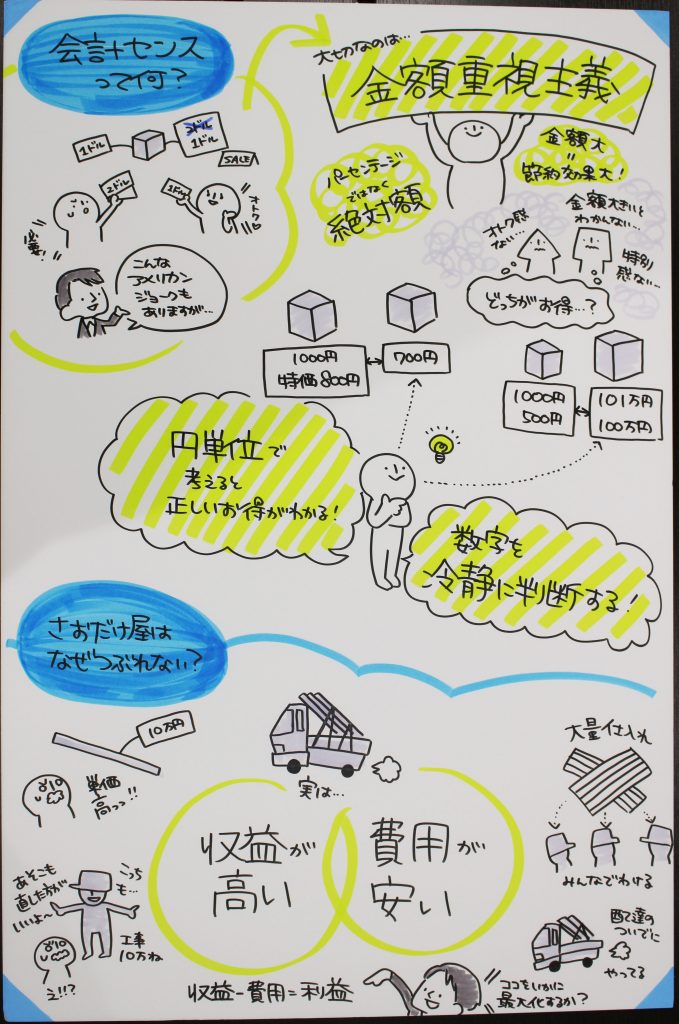 会計センス
って何?
1ドル
2ドル
1ドル
SALE!
2ドル
1ドル
必要?
オトク□
こんな
アメリカン
ジョークも
ありますが…
大切なのは…
金額重視主義
パーセンテージ
ではなく
絶対額
金額大
=
節約効果大!
金額大きいと
わかんない…
オトク感
ない…
特別
感ない…
どっちがお得…?
1000円
特価800円
700円
1000円
500円
101万円
100万円
円単位で
考えると
正しいお得がわかる!
数字を
冷静に判断する!
さおだけ屋は
なぜつぶれない?
10万円
単価
高っっ!!
実は…
大量仕入れ
収益が
高い
費用が
安い
みんなでわける
あそこも
直した方が
いいよ〜
こっち
も…
工事
10万ね
え!!?
配達の
ついでに
やってる
収益-費用=利益
ココをいかに
最大化するか?